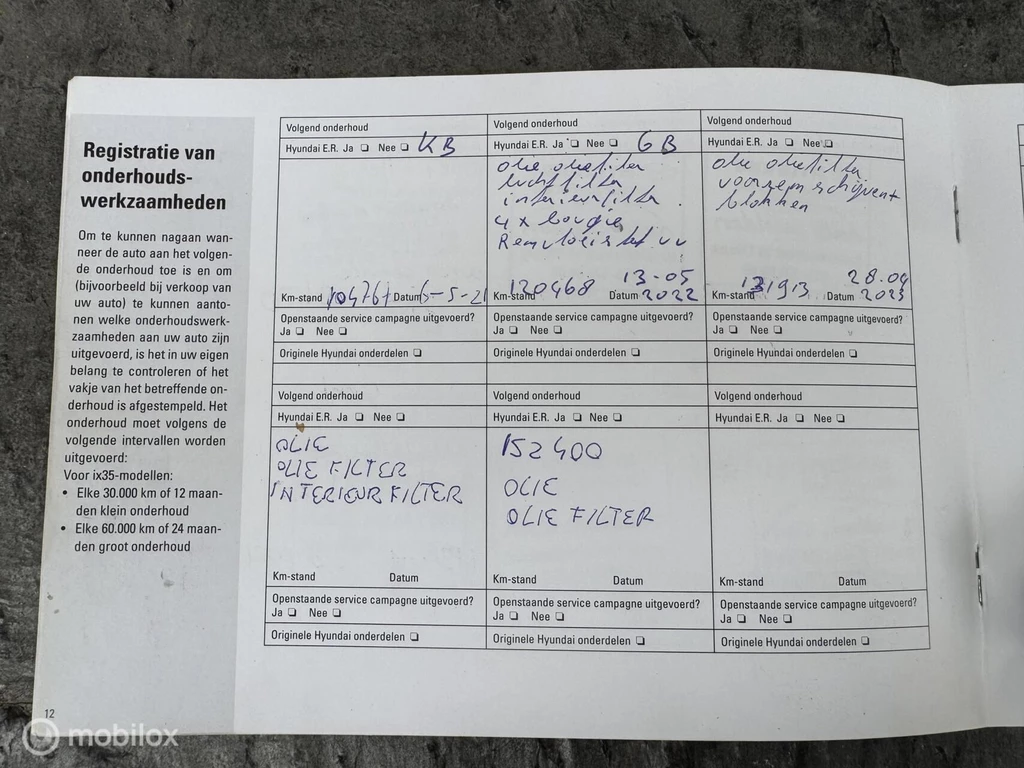 Registratie van
onderhouds-
werkzaamheden
Om te kunnen nagaan wan-
neer de auto aan het volgen-
de onderhoud toe is en om
(bijvoorbeeld bij verkoop van
uw auto) te kunnen aanto-
nen welke onderhoudswerk-
zaamheden aan uw auto zijn
uitgevoerd, is het in uw eigen
belang te controleren of het
vakje van het betreffende on-
derhoud is afgestempeld. Het
onderhoud moet volgens de
volgende intervallen worden
uitgevoerd:
Voor ix35-modellen:
• Elke 30.000 km of 12 maan-
den klein onderhoud
• Elke 60.000 km of 24 maan-
den groot onderhoud
12
Volgend onderhoud
Hyundai E.R. Ja ❏ Nee ❏ KB
Km-stand Datum 6-5-21
Openstaande service campagne uitgevoerd?
Ja ❏ Nee ❏
Originele Hyundai onderdelen ❏
Volgend onderhoud
Hyundai E.R. Ja ❏ Nee ❏ GB
olie oliefilter
luchtfilter
interieurfilter
4 x bougie
Remvloeistof
Km-stand 120468 Datum 13-05
2022
Openstaande service campagne uitgevoerd?
Ja ❏ Nee ❏
Originele Hyundai onderdelen ❏
Volgend onderhoud
Hyundai E.R. Ja ❏ Nee ❏
olie oliefilter
voorrem schijven +
blokken
Km-stand Datum 28.04
2023
Openstaande service campagne uitgevoerd?
Ja ❏ Nee ❏
Originele Hyundai onderdelen ❏
Volgend onderhoud
Hyundai E.R. Ja ❏ Nee ❏
OLIE
OLIE FILTER
INTERIEUR FILTER
Km-stand Datum
Openstaande service campagne uitgevoerd?
Ja ❏ Nee ❏
Originele Hyundai onderdelen ❏
Volgend onderhoud
Hyundai E.R. Ja ❏ Nee ❏
152400
OLIE
OLIE FILTER
Km-stand Datum
Openstaande service campagne uitgevoerd?
Ja ❏ Nee ❏
Originele Hyundai onderdelen ❏
Volgend onderhoud
Hyundai E.R. Ja ❏ Nee ❏
Km-stand Datum
Openstaande service campagne uitgevoerd?
Ja ❏ Nee ❏
Originele Hyundai onderdelen ❏
mobilox